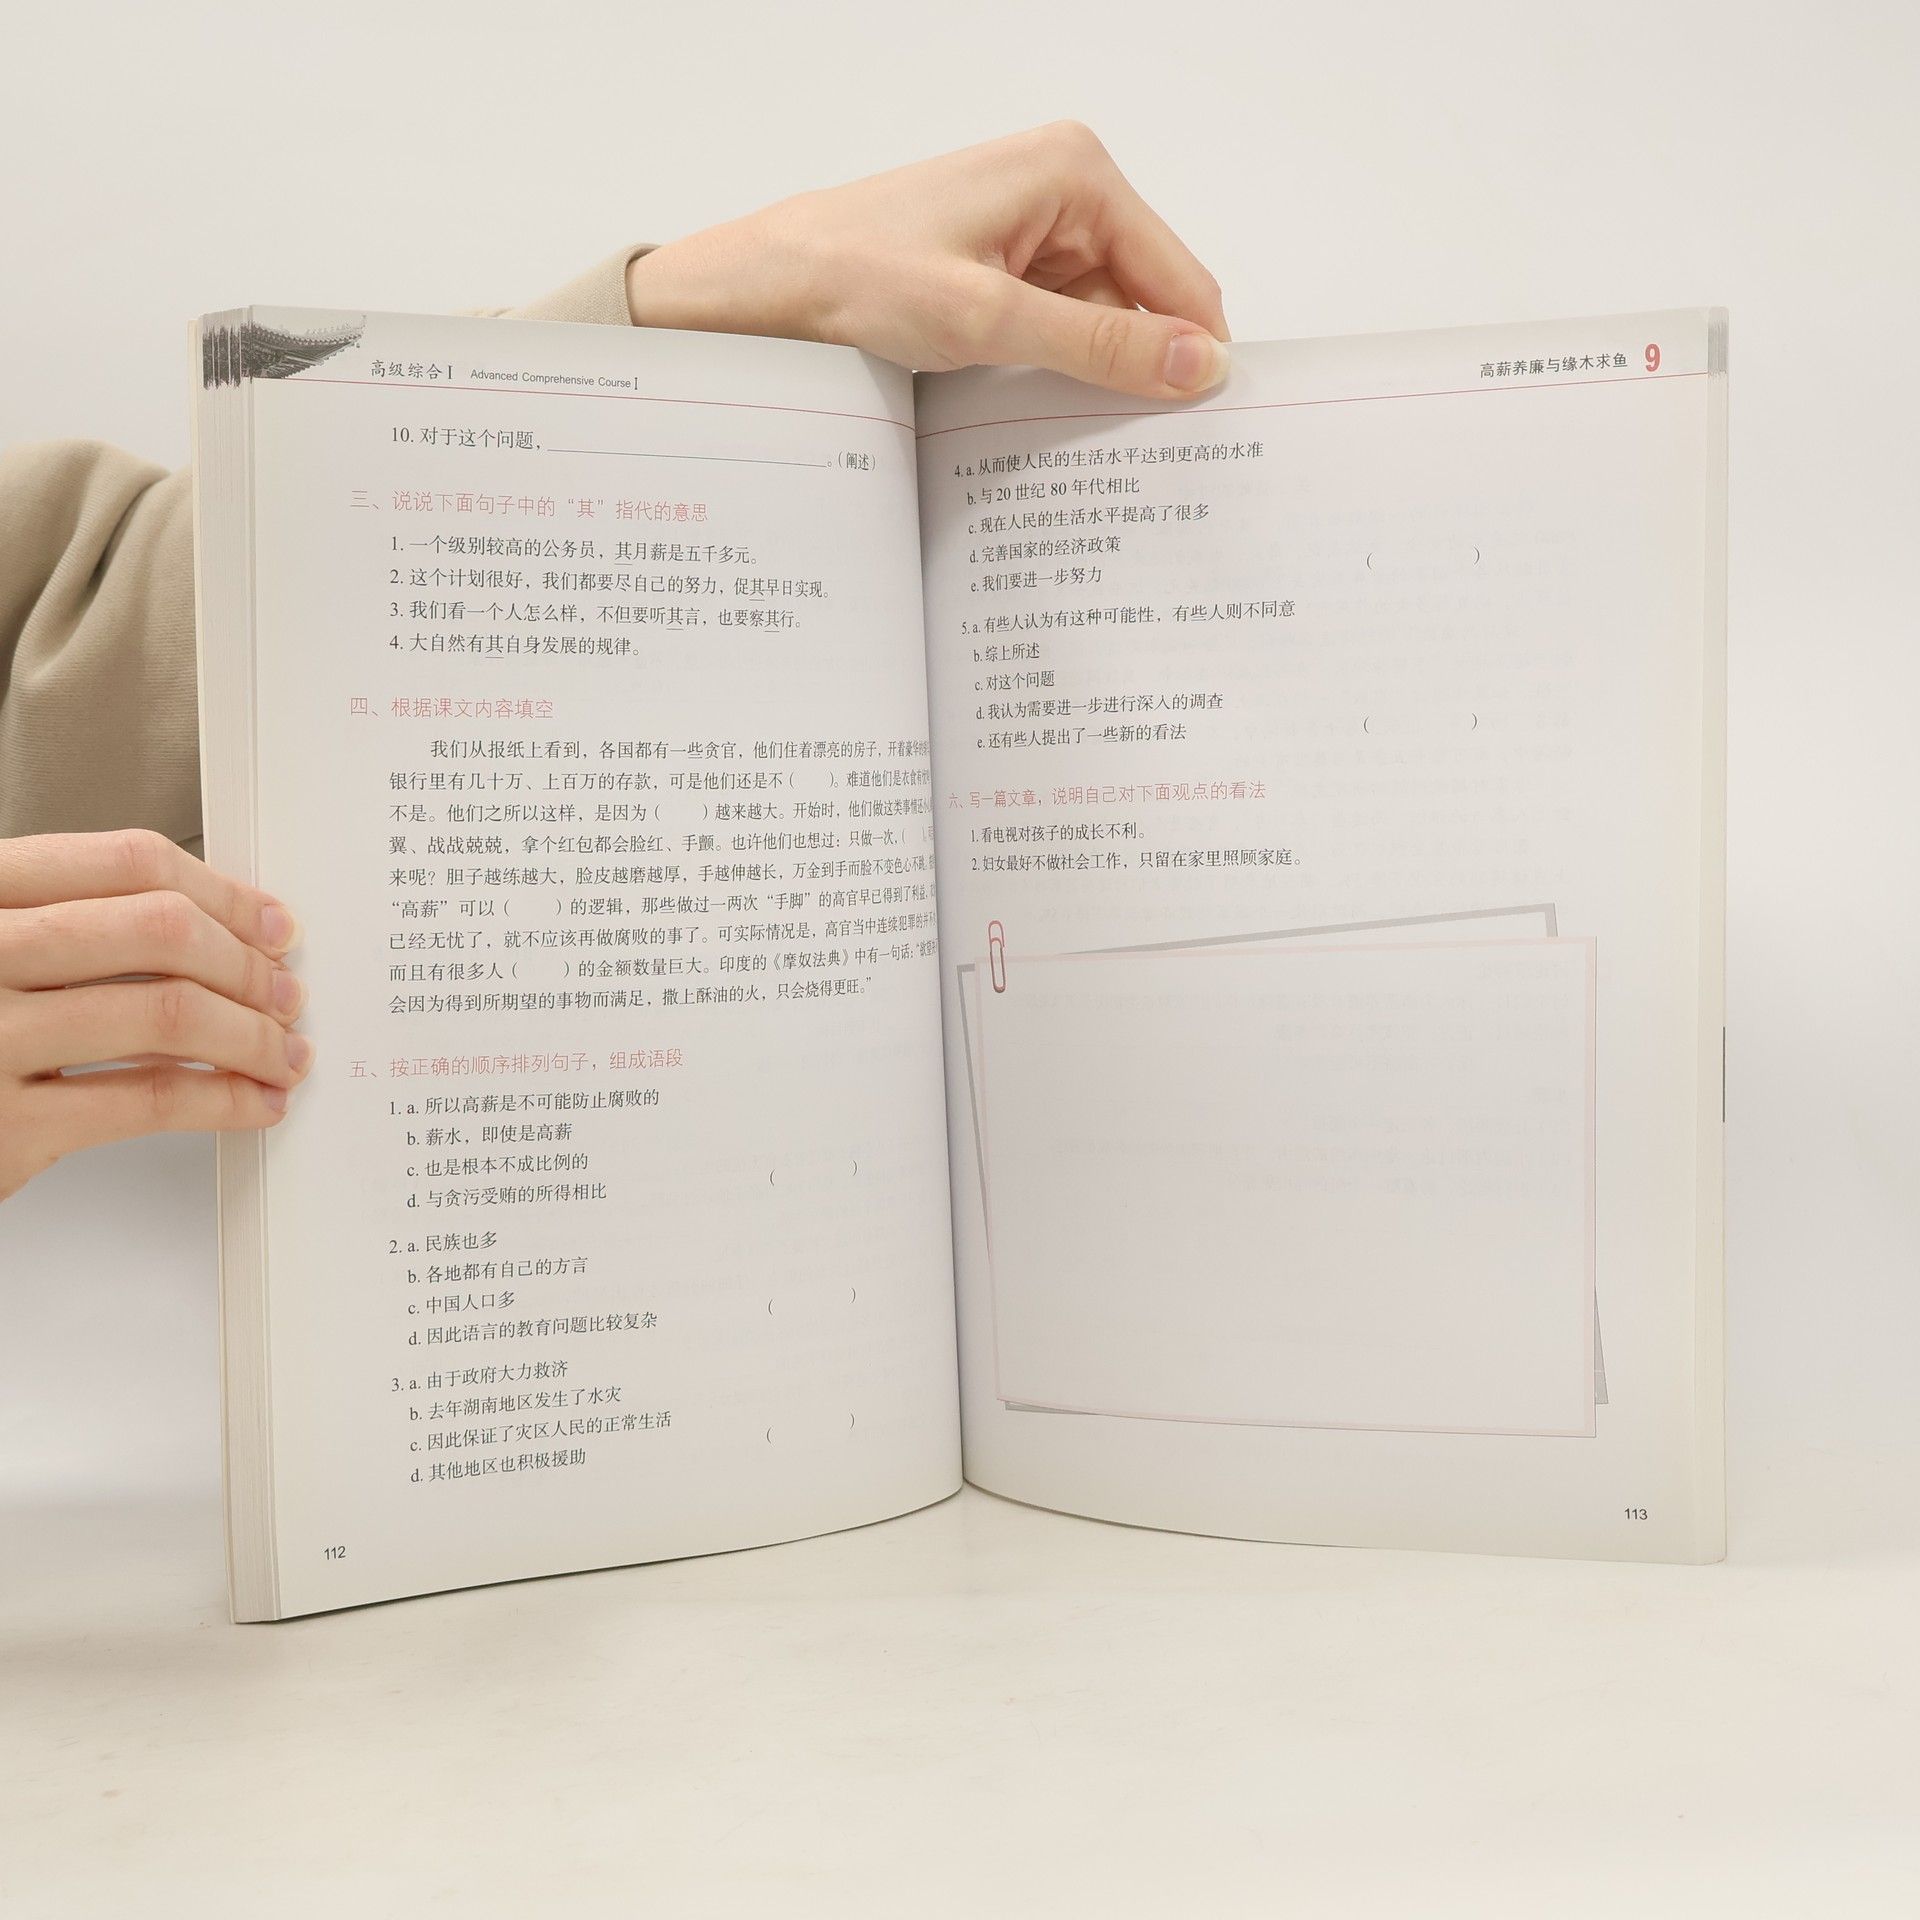 高级综合Ⅰ Advanced Comprehensive CourseⅠ
10. 对于这个问题，____________________。（阐述）
三、说说下面句子中的“其”指代的意思
1. 一个级别较高的公务员，其月薪是五千多元。
2. 这个计划很好，我们都要尽自己的努力，促其早日实现。
3. 我们看一个人怎么样，不但要听其言，也要察其行。
4. 大自然有其自身发展的规律。
四、根据课文内容填空
我们从报纸上看到，各国都有一些贪官，他们住着漂亮的房子，开着豪华的
银行里有几十万、上百万的存款，可是他们还是不（　　）。难道他们是衣食有
不是。他们之所以这样，是因为（　　）越来越大。开始时，他们做这类事情还小
翼、战战兢兢，拿个红包都会脸红、手颤。也许他们也想过：只做一次，（　　）。
来呢？胆子越练越大，脸皮越磨越厚，手越伸越长，万金到手而脸不变色心不跳。
“高薪”可以（　　）的逻辑，那些做过一两次“手脚”的高官早已得到了利益，
已经无忧了，就不应该再做腐败的事了。可实际情况是，高官当中连续犯罪的并不
而且有很多人（　　）的金额数量巨大。印度的《摩奴法典》中有一句话：“欲望
会因为得到所期望的事物而满足，撒上酥油的火，只会烧得更旺。”
五、按正确的顺序排列句子，组成语段
1. a. 所以高薪是不可能防止腐败的
b. 薪水，即使是高薪
c. 也是根本不成比例的
d. 与贪污受贿的所得相比　（　　）
2. a. 民族也多
b. 各地都有自己的方言
c. 中国人口多
d. 因此语言的教育问题比较复杂　（　　）
3. a. 由于政府大力救济
b. 去年湖南地区发生了水灾
c. 因此保证了灾区人民的正常生活
d. 其他地区也积极援助　（　　）
112
高薪养廉与缘木求鱼 9
4. a. 从而使人民的生活水平达到更高的水准
b. 与 20 世纪 80 年代相比
c. 现在人民的生活水平提高了很多
d. 完善国家的经济政策
e. 我们要进一步努力　（　　）
5. a. 有些人认为有这种可能性，有些人则不同意
b. 综上所述
c. 对这个问题
d. 我认为需要进一步进行深入的调查
e. 还有些人提出了一些新的看法　（　　）
六、写一篇文章，说明自己对下面观点的看法
1. 看电视对孩子的成长不利。
2. 妇女最好不做社会工作，只留在家里照顾家庭。
113